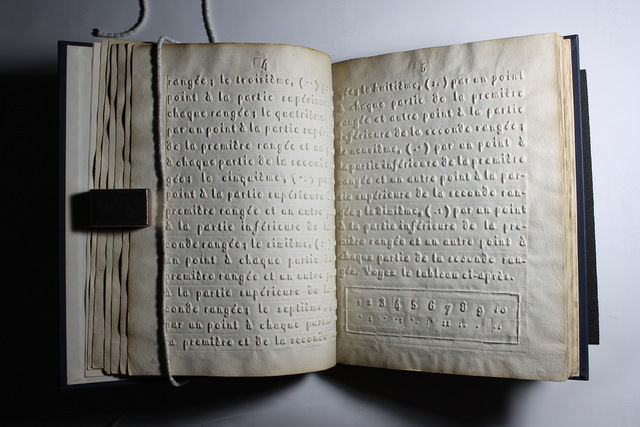 4
rangée; le troisième, (··)
point à la partie supérieure
chaque rangée; le quatrième
par un point à la partie supé
de la première rangée et un
à chaque partie de la seconde
gée; le cinquième,
point à la partie supérieure
première rangée et un autre
à la partie inférieure de
conde rangée; le sixième, (:
un point à chaque partie
première rangée et un autre
à la partie supérieure de
conde rangée; le septième,
par un point à chaque part
la première et de la seconde
5
le huitième, (:.) par un point
chaque partie de la première
rangée et autre point à la partie
inférieure de la seconde rangée;
le neuvième, (.·) par un point à
partie inférieure de la première
rangée et un autre point à la par-
supérieure de la seconde ran-
gée; le dixième, (.:) par un point
à la partie inférieure de la pre-
mière rangée et un autre point à
chaque partie de la seconde ran-
gée. Voyez le tableau ci-après.
1 2 3 4 5 6 7 8 9 10